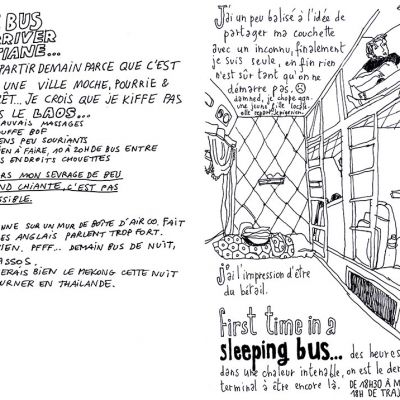 BUS
RRIVER
TIANE...
PARTIR DEMAIN PARCE QUE C'EST
UNE VILLE MOCHE, POURRIE &
RÊT... JE CROIS QUE JE KIFFE PAS
LE LAOS...
AUVAIS MASSAGES
OUFFE BOF
ENS PEU SOURIANTS
EN À FAIRE, 10 À 20H DE BUS ENTRE
ES ENDROITS CHOUETTES
RS MON SEVRAGE DE BEU
ND CHIANTE, C'EST PAS
SSIBLE.
NNE SUR UN MUR DE BOÎTE D'AIR CO. FAIT
ES ANGLAIS PARLENT TROP FORT.
IEN. PFFF... DEMAIN BUS DE NUIT,
ASSOS.
ERAIS BIEN LE MEKONG CETTE NUIT
URNER EN THAILANDE.
J'ai un peu balisé à l'idée de
partager ma couchette
avec un inconnu, finalement
je suis seule, en fin rien
n'est sûr tant qu'on ne
démarre pas.
damned, je chope
une jeune fille
elle
j'ai l'impression d'être
du bétail.
first time in a
sleeping bus... des heures
dans une chaleur intenable, on est le der
terminal à être encore là. DE 18H30 À M
18H DE TRAJ